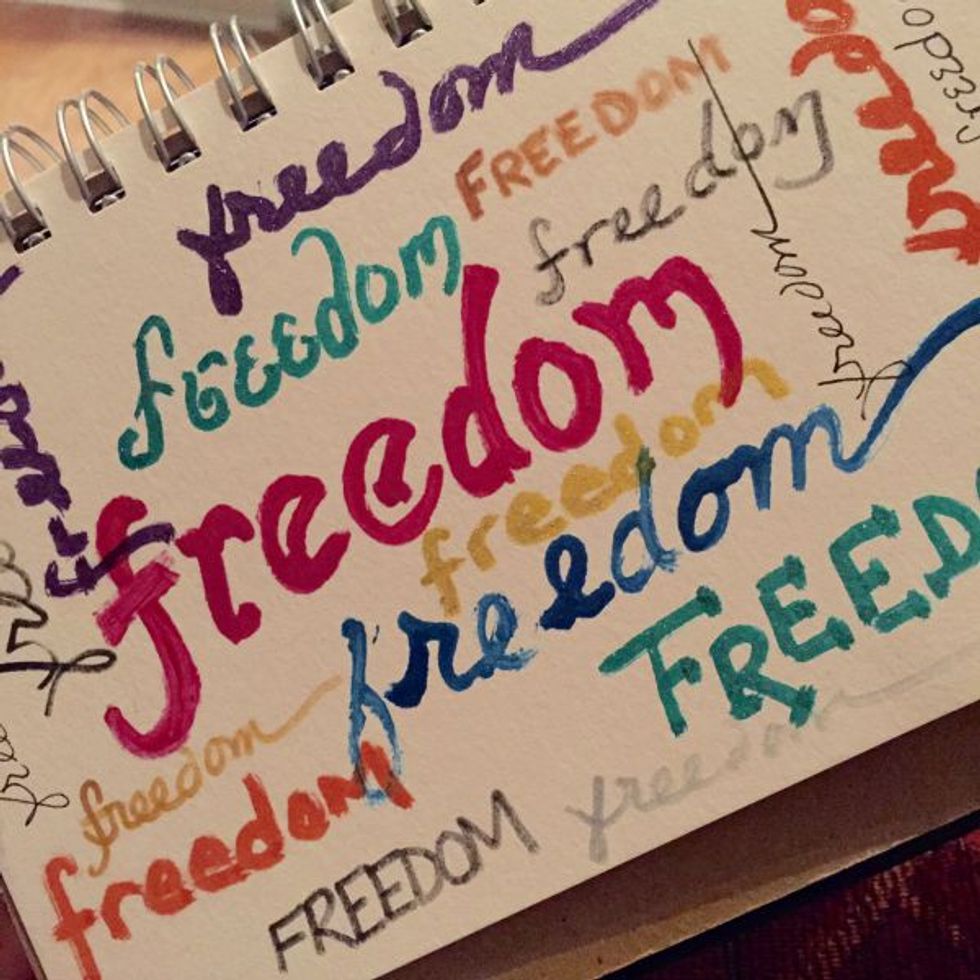 freedom
FREEDOM
freedom
freedom
freedom
freedom
freedom
freedom
FREEDO
freedo
free
free
freedom
freedom
FREEDOM
freedom